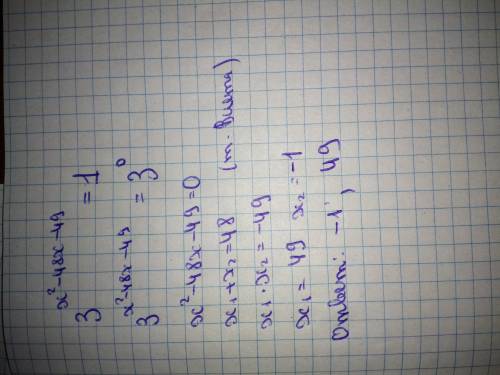 3^(x²-48x-49) = 1
3^(x²-48x-49) = 3^0
x²-48x-49=0
x₁+x₂=48 (т. Виета)
x₁·x₂=-49
x₁= 49 x₂=-1
Ответ: -1, 49